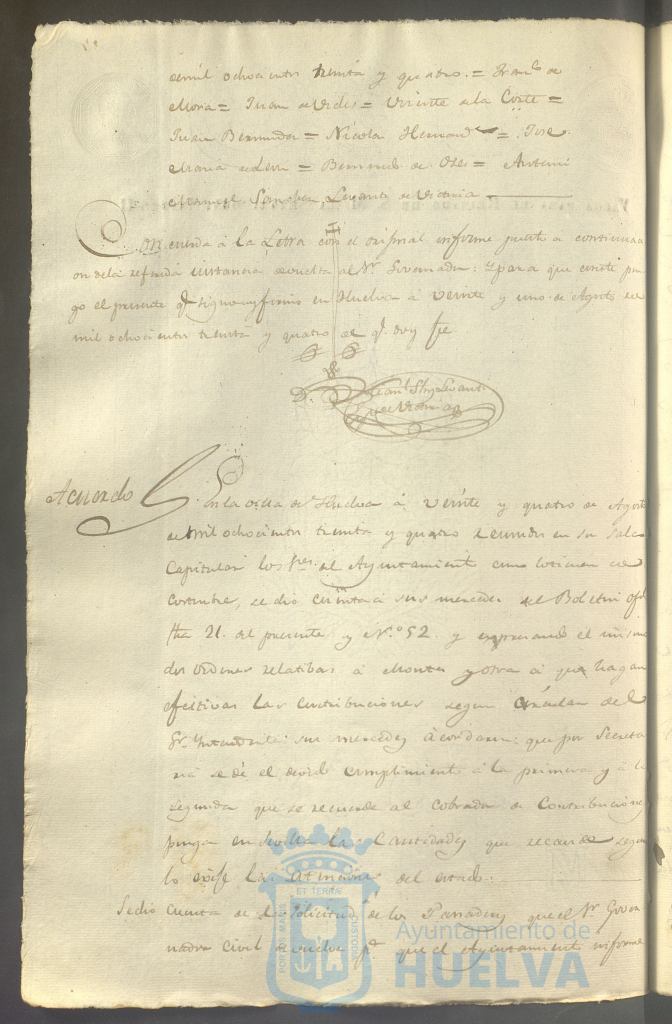 de mil ochocientos treinta y quatro. = Fran.co de
Mora = Juan de Vides = Vicente de la Corte =
Juan Bermudez = Nicolas Hernand.z = Jose
Maria de Leon = Bernardo de = Antonio
Manuel Sanchez Levanto de Victoria
Concuerda á la Letra con el original informe puesto á continuaci
on dela referida instancia devuelta al S.r Governador: Y para que conste pon
go el presente q.e signo y firmo en Huelva á veinte y uno de Agosto de
mil ochocientos treinta y quatro de q.e doy fe
Man.l Shz Levanto
de Victoria
Acuerdo
En la Villa de Huelva á veinte y quatro de Agosto
de mil ochocientos treinta y quatro reunidos en su Sala
Capitular los Sres. del Ayuntamiento como lo tienen de
costumbre, se dio cuenta á sus mercedes del Boletin ofl
fha 21. del presente y N.º 52. y expresando el mismo
dos ordenes relatibas á Montes y otra á que hagan
efectivas las contribuciones segun circular del
Sr. Yntendente: sus mercedes acordaron: que por Secreta
ria se dé el devido cumplimiento á la primera y á la
segunda que se recuerde al Cobrador de Contribuciones
ponga en Sevilla las Cantidades que recaude segun
lo exife las atenciones del estado.
Se dio Cuenta de la Solicitud de los Panaderos que el Sr Gover
nador Civil devuelve p.a que el Ayuntamiento informe
PORTUS MARIS
ET TERRAE
CUSTODIA
Ayuntamiento de
HUELVA